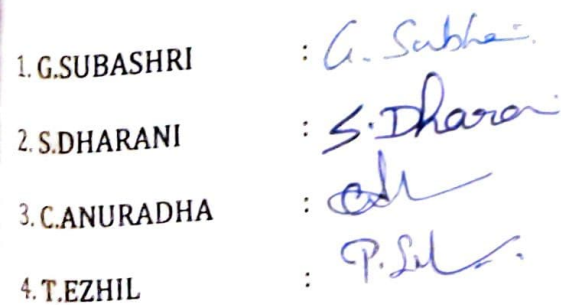 1. G.SUBASHRI : G. Subha
2. S.DHARANI : S.Dharani
3. C.ANURADHA :
4. T.EZHIL :